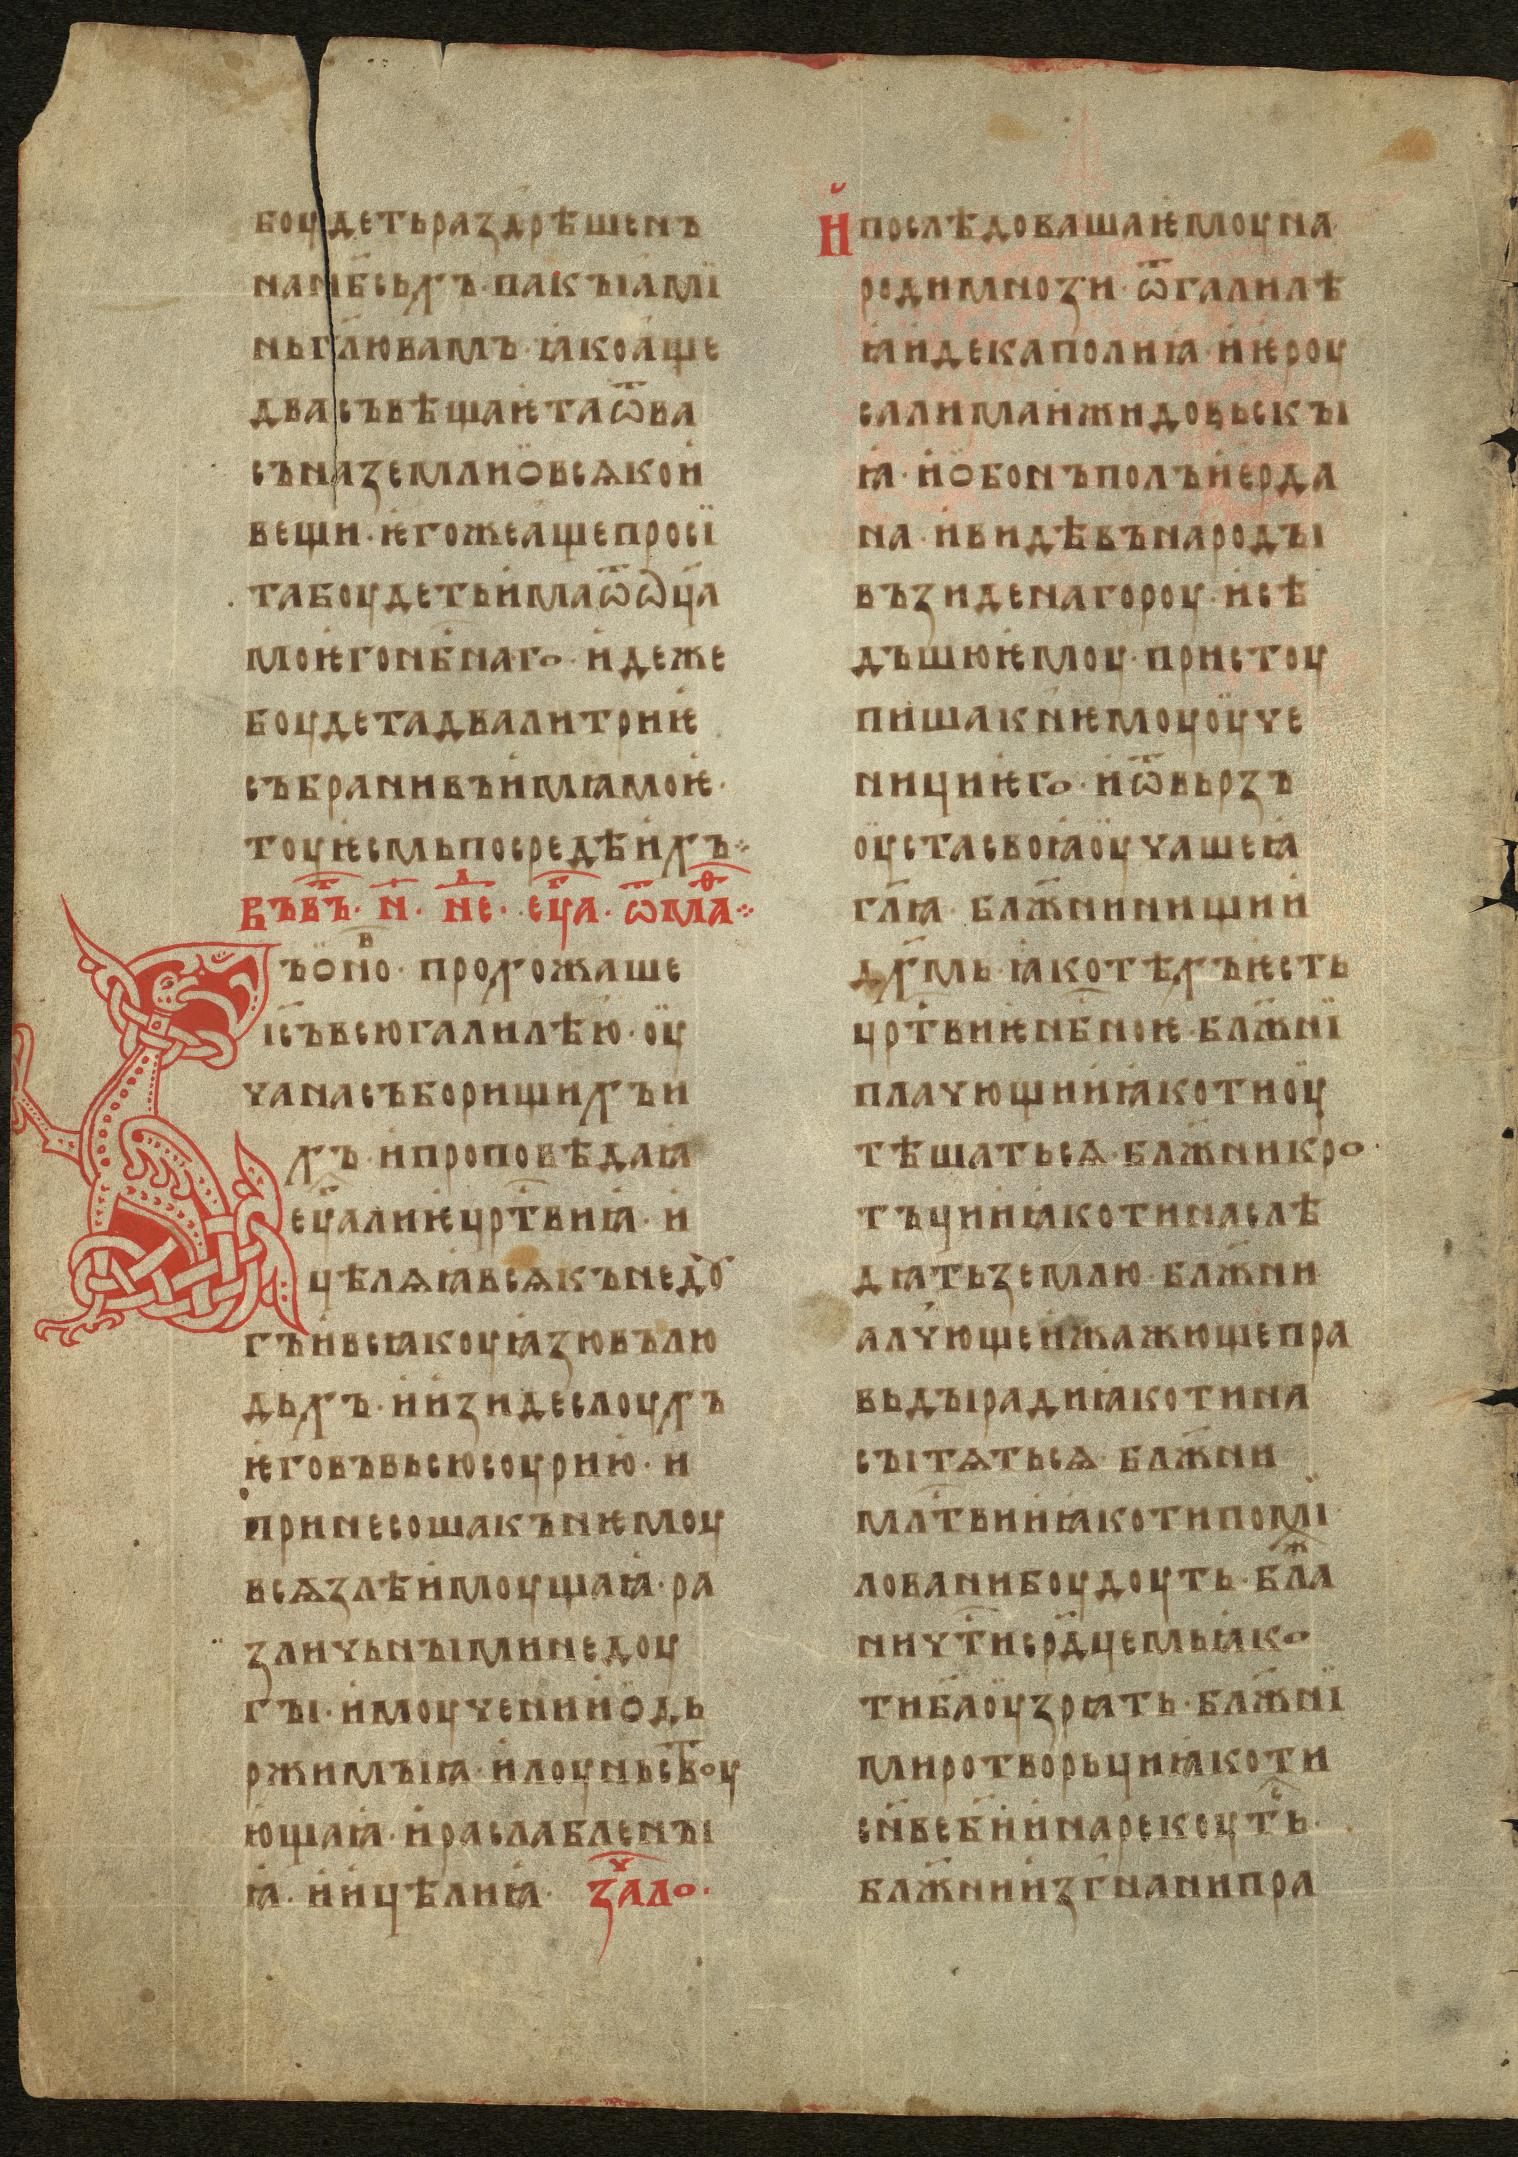 боудетьраздрѣшенъ
нан҃бсьхъ·пакъıꙗмї
ньгл҃ювамъ·ꙗкоаще
двасъвѣщаѥтаѿва
съназемлиꙫвсѧкои
вещи·ѥгожеащепросї
табоудетьимаѿѡц҃а
моѥгон҃бнаго·идеже
боудетадвалитриѥ
събранивъимꙗмоѥ·
тоуѥсмьпосредѣихъ·
Въвт҃ъ·н҃·нд҃е·ег҃уа·ѿмаѳ҃·
ъꙫно·прохожаше
іс҃ъвсюгалилѣю·оу
ꙋчанасъборищихъи
хъ·ипроповѣдаꙗ
еу҃алиѥцрт҃виꙗ·и
цѣлѧꙗвсѧкънедо
гъивсꙗкоуꙗзювълю
дьхъ·иизидеслоухъ
ѥговъвьсюсоурию·и
принесошакънѥмоу
всѧзлѣимоущаꙗ·ра
зличьнъıминедоу
гъı·имоученииꙫдь
ржимъıꙗ·илоуньств҃оу
ющаꙗ·ираслабленъı
ꙗ·иицѣлиꙗ· зач҃ало·
Ипослѣдовашаѥмоуна
родимнози·ѿгалилѣ
ꙗидекаполиꙗ·иѥроу
салимаижидовьскъı
ꙗ·иꙫбонъполъиерда
на·ивидѣвънародъı
възиденагороу·исѣ
дъшюѥмоу·пристоу
пишакн҃ѥмоуоуче
нициѥго·иѿвьрзъ
оустасвоꙗоучашеꙗ
гл҃ꙗ·блж҃нинищии
дх҃мь·ꙗкотѣхъѥсть
црт҃виѥнб҃ноѥ·блж҃нї
плачющииꙗкотиоу
тѣшатьсѧ·блж҃никро
тъцииꙗкотинаслѣ
дꙗтьземлю·блж҃ни
алчющеижажющепра
вьдъırадиꙗкотина
съıтѧтьсѧ·блж҃ни
млт҃виииꙗкотипомї
ловани·боудоуть·блж҃а
ничт҃исрд҃цемьꙗко
тиб҃аоузрꙗть·блж҃нї
миротворьциꙗкоти
сн҃веб҃иинарекоуть҃·
блж҃нииизгнанипра